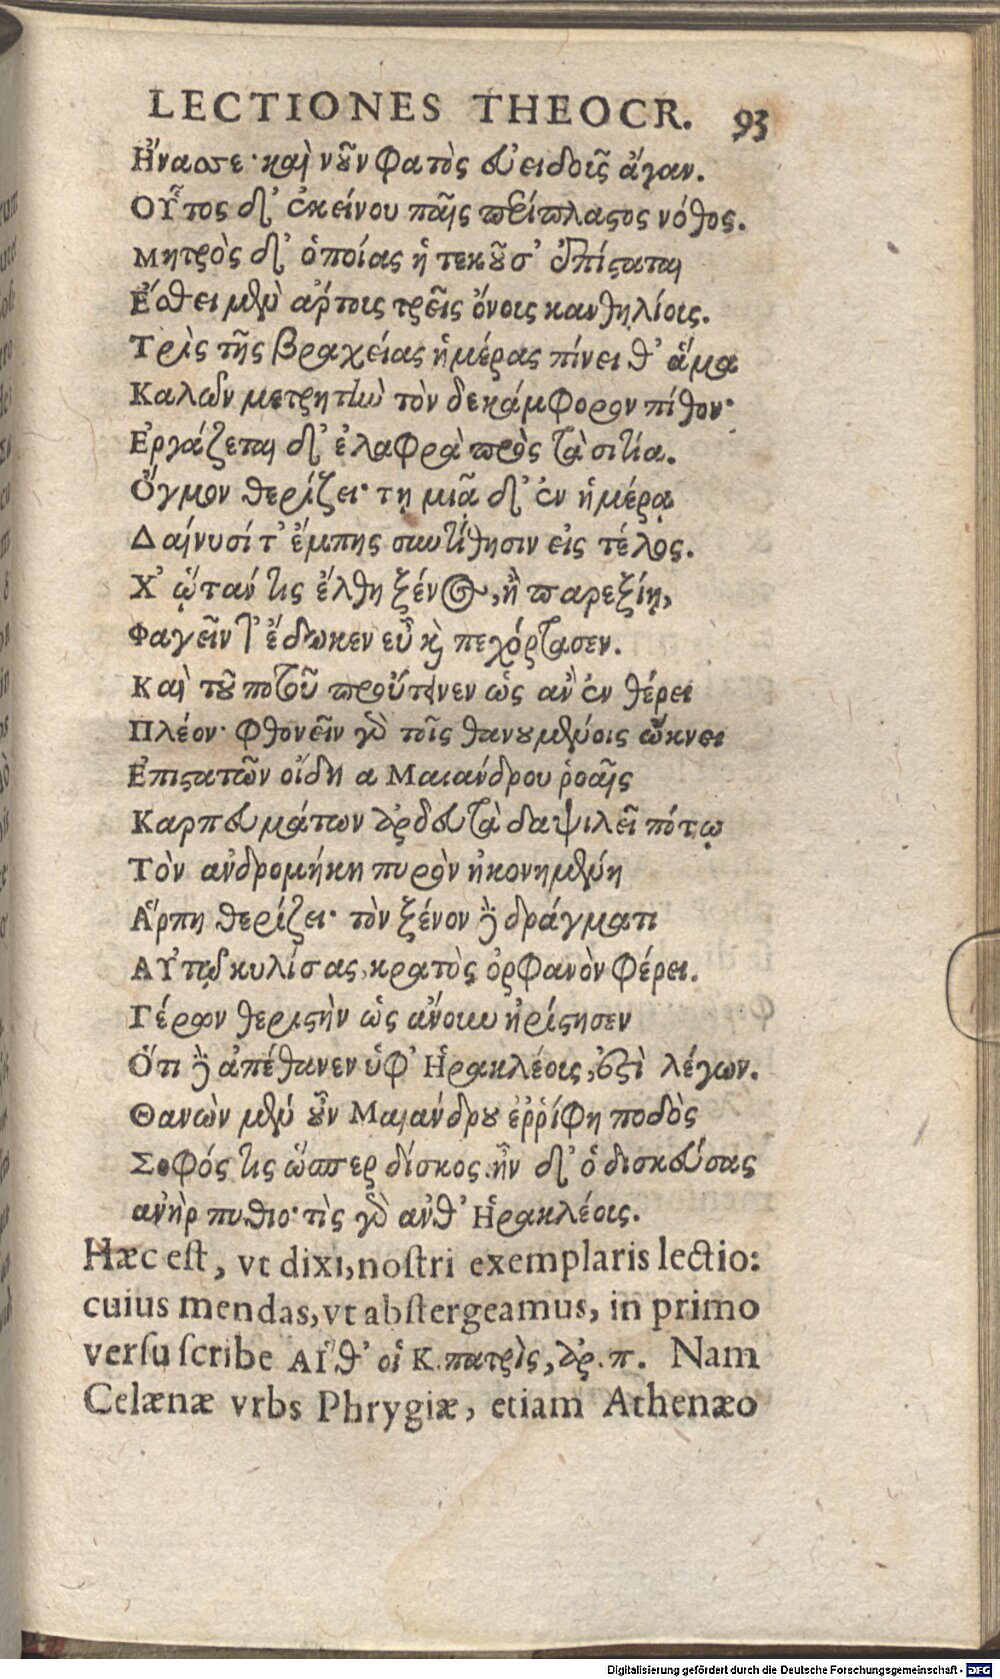 LECTIONES THEOCR. 93
Ἤνασσε· καὶ νῦν φατὸς εὐειδοῖς ἄγαν.
Οὗτος δ' ἐκείνου παῖς περίπλαστος νόθος.
Μητρὸς δ' ὁποίας ἡ τεκοῦσ' ἐπίσταται
Ἔσθει μὲν ἄρτοις τρεῖς ὄνοις κανθηλίοις.
Τρὶς τῆς βραχείας ἡμέρας πίνει θ' ἅμα
Καλῶν μετρητὴν τὸν δεκάμφορον πίθον·
Ἐργάζεται δ' ἐλαφρὰ πρὸς τὰ σιτία.
Ὄγμον θερίζει· τῃ μιᾶ δ' ἐν ἡμέρᾳ
Δαίνυσί τ' ἔμπης συντίθησιν εἰς τέλος.
Χ' ᾥταν τις ἔλθη ξένος, ἢ παρεξίῃ,
Φαγεῖν τ' ἔδωκεν εὖ καὶ πεχόρτασεν.
Καὶ τοῦ ποτοῦ προὔτεινεν ὡς ἂν ἐν θέρει
Πλέον· φθονεῖν γὰρ τοῖς θανουμένοις ὤκνει
Ἐπιστατῶν οἴδη α Μαιάνδρου ῥοαῖς
Καρπευμάτων ἀρδευτὰ δαψιλεῖ πότῳ
Τὸν ἀνδρομήκη πυρὸν ἠκονημένη
Ἅρπη θερίζει· τὸν ξένον δὲ δράγματι
Αὐτῷ κυλίσας, κρατὸς ὀρφανὸν φέρει.
Γέρων θεριστὴν ὡς ἄνουν ἠρίστησεν
Ὅτι δὲ ἀπέθανεν ὑφ' Ἡρακλέοις, ἐστὶ λέγων.
Θανὼν μὲν οὖν Μαιάνδρου ἐῤῥίφη ποδὸς
Σοφός τις ὥσπερ δίσκος ἦν δ' ὁ δισκεύσας
ἀνὴρ πυθιο· τὶς γὰρ ἀνθ' Ἡρακλέοις.
Hæc est, vt dixi, nostri exemplaris lectio:
cuius mendas, vt abstergeamus, in primo
versu scribe Αἵθ' οἱ Κ. πατρὶς, ἀρ. π. Nam
Celænæ vrbs Phrygiæ, etiam Athenæo
Digitalisierung gefördert durch die Deutsche Forschungsgemeinschaft - DFG